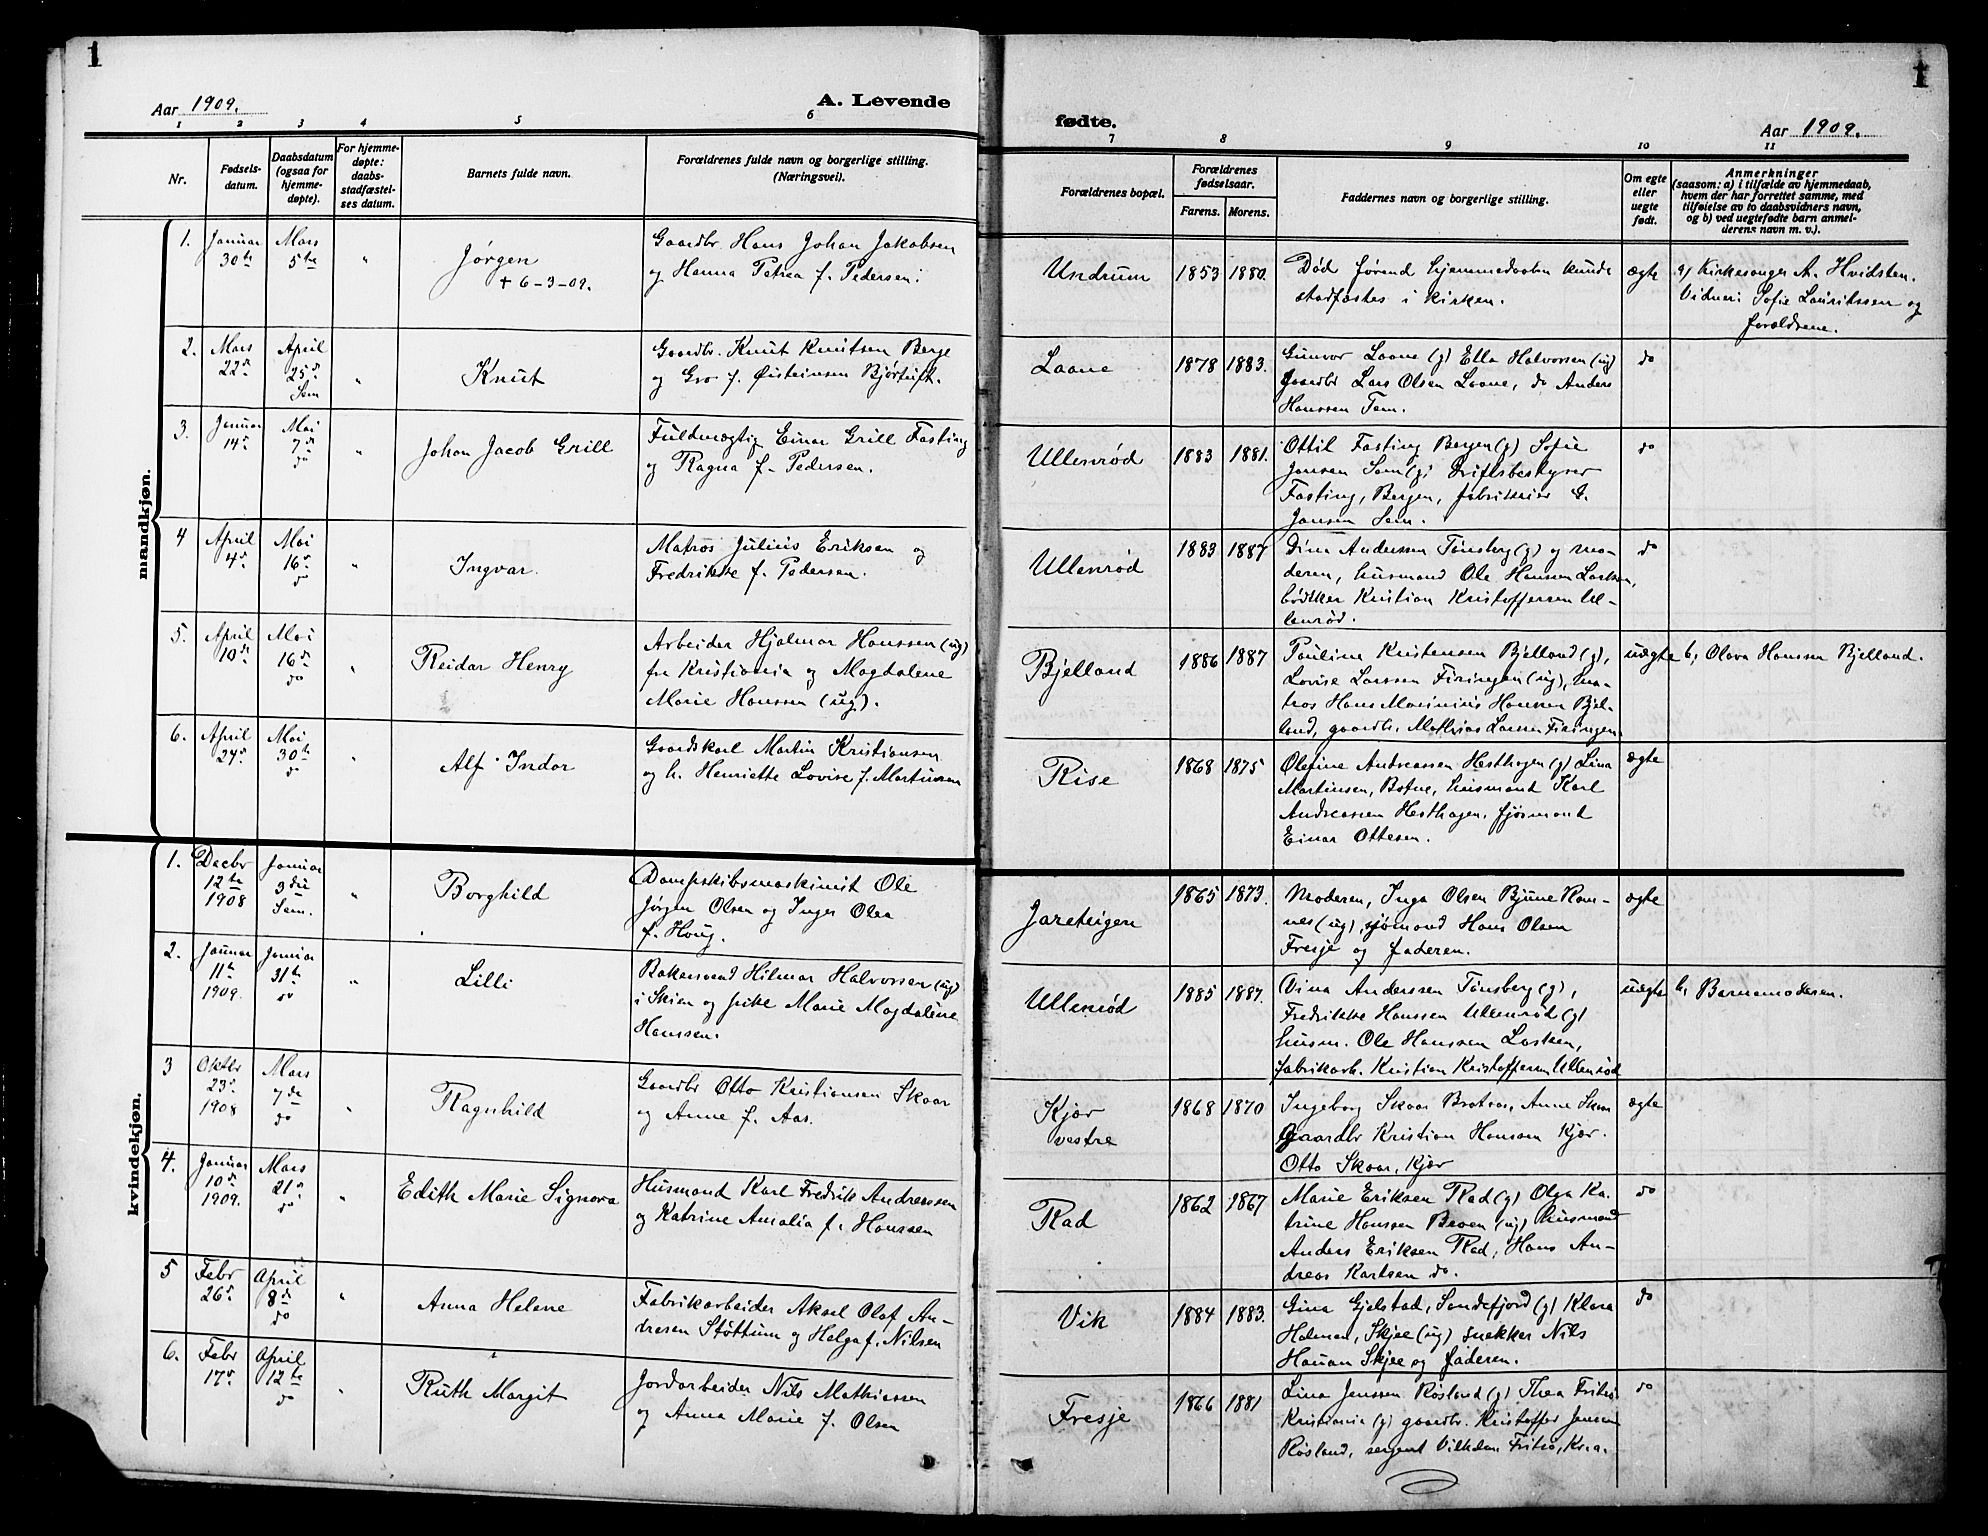 1
1
Aar 1909.
A. Levende
fødte.
Aar 1909.
1 2 3 4 5 6 7 8 9 10 11
Nr.
Fødsels-
datum.
Daabsdatum
(ogsaa for
hjemme-
døpte).
For hjemme-
døpte:
daabs-
stadfæstel-
ses datum.
Barnets fulde navn.
Forældrenes fulde navn og borgerlige stilling.
(Næringsvei).
Forældrenes bopæl.
Forældrenes
fødselsaar.
Farens. Morens.
Faddernes navn og borgerlige stilling.
Om egte
eller
uegte
født.
Anmerkninger
(saasom: a) i tilfælde av hjemmedaab,
hvem der har forrettet samme, med
tilføielse av to daabsvidners navn,
og b) ved uegtefødte barn anmel-
derens navn m. v.).
mandkjøn.
1.
Januar
30te
Mars
5te
"
Jørgen
+ 6-3-09.
Gaardbr. Hans Johan Jakobsen
og Hanna Petrea f. Pedersen.
Undrum
1853
1880.
Død førend hjemmedaaben kunde
stadfæstes i kirken.
ægte
a) Kirkesanger A. Hvidsten.
Vidner: Sofie Lauritssen og
forældrene.
2.
Mars
22de
April
25de
Sem
"
Knut
Gaardbr. Knut Knutsen Berge
og Gro f. Øisteinsen Bjørtuft.
Laane
1878
1883.
Gunvor Laane (g) Ella Halvorsen (ug)
Gaardbr Lars Olsen Laane, do Anders
Hanssen Tem.
do
3.
Januar
14de
Mai
7de
do
"
Johan Jacob Grill
Fuldmægtig Einar Grill Fasting
og Ragna f. Pedersen.
Ullenrød
1883
1881.
Ottil Fasting Bergen (g) Sofie
Jansen Sem (g) Driftsbestyrer
Fasting, Bergen, fabrikeier G.
Jansen Sem.
do
4
April
4de
Mai
16de
do
"
Ingvar.
Matros Julius Eriksen og
Fredrikke f. Pedersen.
Ullenrød
1883
1887
Dina Anderssen Tønsberg (g) og mo-
deren, husmand Ole Hanssen Lasken,
bødtker Kristian Kristoffersen Ul-
lenrød.
do
5.
April
10de
Mai
16de
do
"
Reidar Henry
Arbeider Hjalmar Hanssen (ug)
fra Kristiania og Magdalene
Marie Hanssen (ug).
Bjelland
1886
1887
Pauline Kristensen Bjelland (g),
Lovise Larssen Firingen (ug), ma-
tros Hans Marinius Hanssen Bjel-
land, gaardbr. Mathias Larsen Firingen.
uægte
b, Olava Hansen Bjelland.
6.
April
24de
Mai
30te
do
"
Alf Indar
Gaardskarl Martin Kristiansen
og h. Henriette Lovise f. Martinsen
Rise
1868
1875
Olefine Andreassen Hesthagen (g) Lina
Martinsen, Botne, husmand Karl
Andreassen Hesthagen, sjømand
Einar Ottesen.
ægte
kvindekjøn.
1.
Decbr
12te
1908
Januar
3die
Sem.
"
Borghild
Dampskibsmaskinist Ole
Jørgen Olsen og Inger Olea
f. Houg.
Jareteigen
1865
1873.
Moderen, Inga Olsen Bjune Ram-
nes (ug), sjømand Hans Olsen
Fresje og faderen.
ægte
2.
Januar
11te
1909.
Januar
31te
do
"
Lilli
Bakersvend Hilmar Halvorsen (ug)
i Skien og pike Marie Magdalene
Hanssen.
Ullenrød
1885
1887.
Dina Anderssen Tønsberg (g),
Fredrikke Hanssen Ullenrød (g)
husm. Ole Hanssen Lasken,
fabrikarb. Kristian Kristoffersen Ullenrød
uægte
b, Barnemoderen.
3
Oktbr
23de
1908
Mars
7de
do
"
Ragnhild
Gaardbr Otto Kristiansen Skaar
og Anne f. Aas.
Kjær
vestre
1868
1870
Ingeborg Skaar Bratsaa, Anne Skaar
Gaardbr Kristian Hansen Kjær.
Otto Skaar, Kjær
ægte
4.
Januar
10de
1909.
Mars
21de
do
"
Edith Marie Signora
Husmand Karl Fredrik Andreassen
og Katrine Amalia f. Hanssen
Rad
1862
1867
Marie Eriksen Rad (g) Olga Ka-
trine Hanssen Breen (ug) husmand
Anders Eriksen Rad, Hans An-
dreas Karlsen do.
do
5
Febr
26de
April
8de
do
"
Anna Helene
Fabrikarbeider Aksel Olaf An-
dresen Støttum og Helga f. Nilsen
Vik
1884
1883.
Gina Gjelstad, Sandefjord (g) Klara
Holman, Skjee (ug) snekker Nils
Hauan Skjee og faderen.
do
6.
Febr
17de
April
12te
do
"
Ruth Margit
Jordarbeider Nils Mathiassen
og Anna Marie f. Olsen
Fresje
1866
1881
Lina Janssen Røsland (g) Thea Fritsø
Kristiania (g) gaardbr. Kristoffer Jansen
Røsland, sergent Vilhelm Fritsø, Kr.a.
do